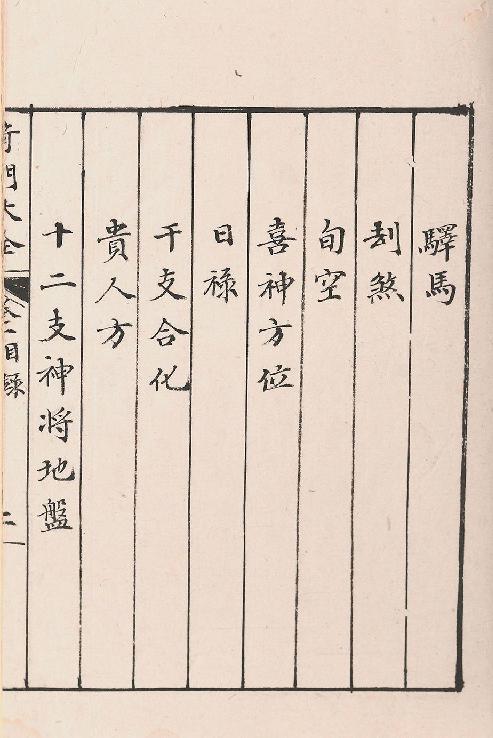 驛馬
刦煞
旬空
喜神方位
日祿
干支合化
貴人方
十二支神將地盤
奇門大全
目錄